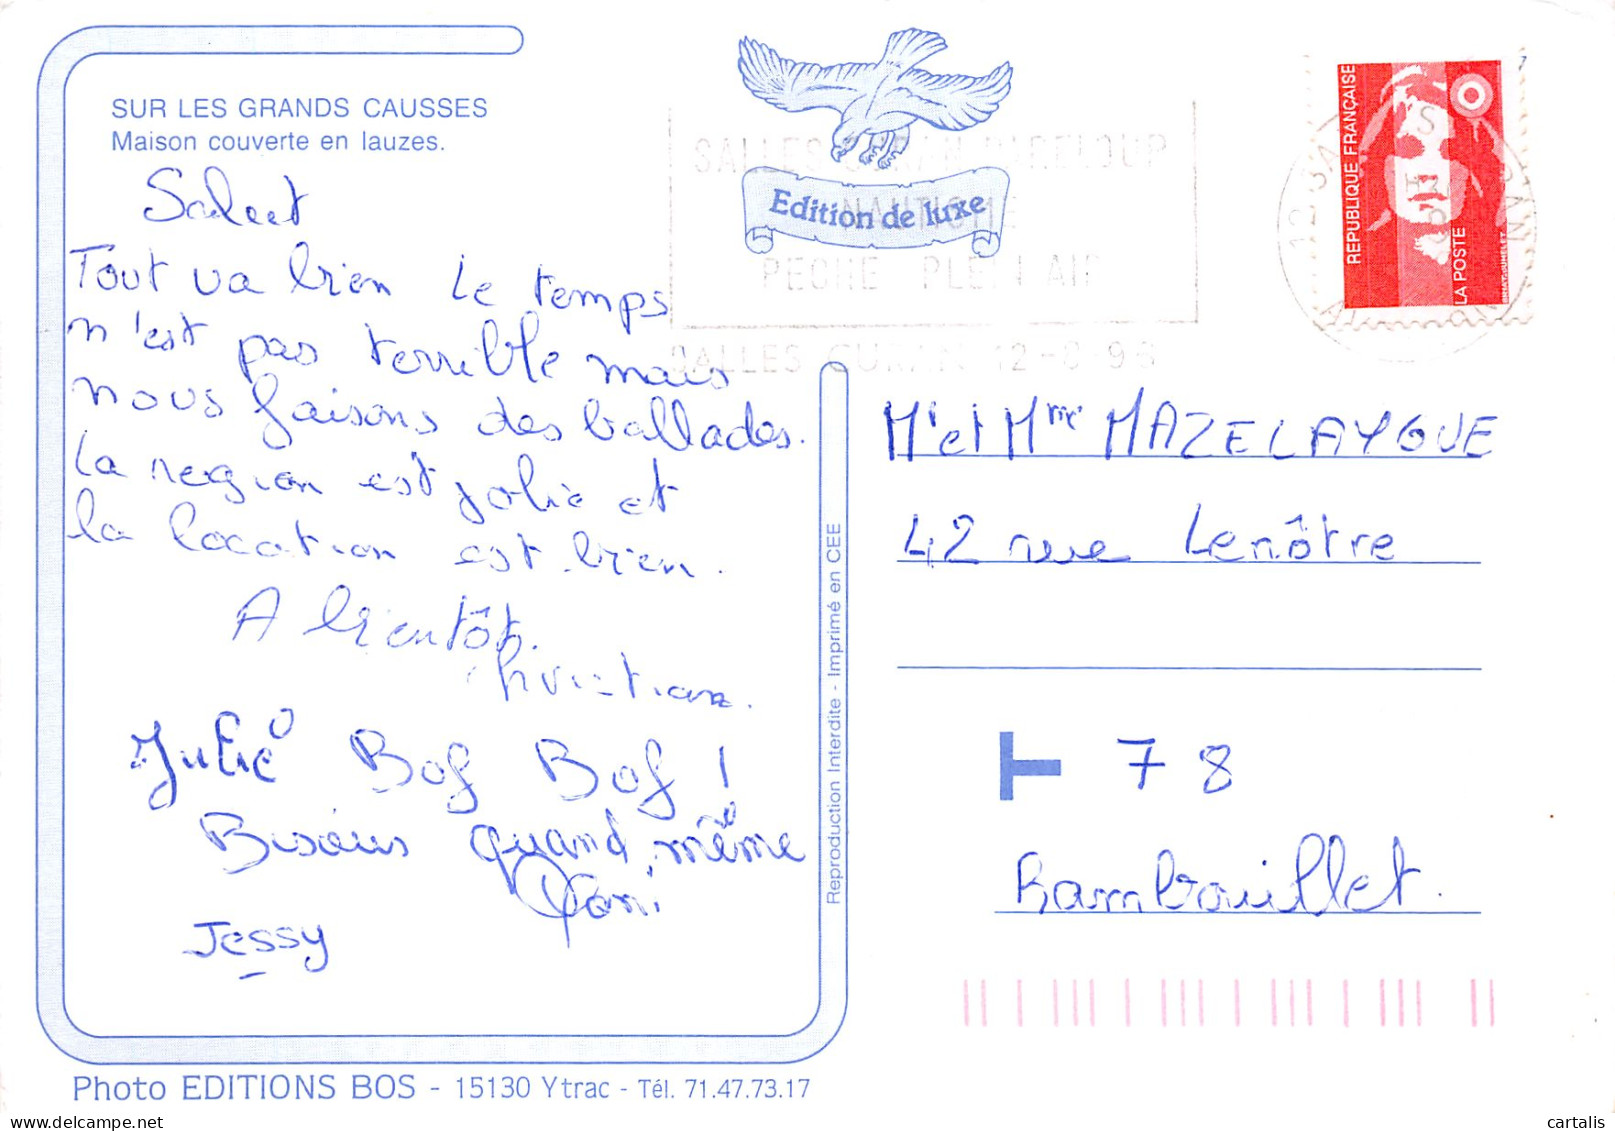 SUR LES GRANDS CAUSSES
Maison couverte en lauzes.
Salut
Tout va bien le temps
n'est pas terrible mais
nous faisons des ballades.
la region est jolie et
la location est bien.
A bientôt.
Christian.
Julie Bof Bof !
Bisous quand même
Dani
Jessy
Edition de luxe
SALLES CURAN PARELOUP
NAUTISME
PECHE PLEIN AIR
SALLES CURAN 12
REPUBLIQUE FRANÇAISE
LA POSTE
M et Mme MAZELAYGUE
42 rue Lenôtre
78
Rambouillet.
Reproduction Interdite - Imprimé en CEE
Photo EDITIONS BOS - 15130 Ytrac - Tél. 71.47.73.17
cartalis